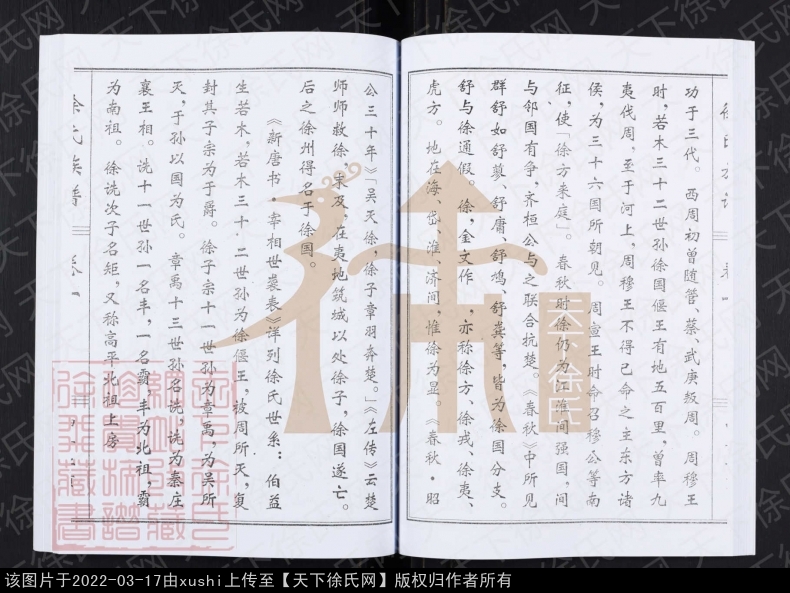 功于三代。西周初曾随管、蔡、武庚叛周。周穆王
时，若木三十二世孙徐国偃王有地五百里，曾率九
夷伐周，至于河上，周穆王不得已命之主东方诸
侯，为三十六国所朝见。周宣王时命召穆公等南
征，使「徐方来庭」。春秋时徐仍为江淮间强国，间
与邻国有争，齐桓公与之联合抗楚。《春秋》中所见
群舒如舒蓼、舒庸、舒鸠、舒龚等，皆为徐国分支。
舒与徐通假。徐，金文作　，亦称徐方、徐戎、徐夷、
虎方。地在海、岱、淮、济间，惟徐为显。《春秋·昭
公三十年》「吴灭徐，徐子章羽奔楚。」《左传》云楚
师师救徐，未及，在夷地筑城以处徐子，徐国遂亡。
后之徐州得名于徐国。
《新唐书·宰相世袭表》详列徐氏世系：伯益
生若木，若木三十二世孙为徐偃王，被周所灭，复
封其子宗为子爵。徐子宗十一世孙为章禹，为吴所
灭，于孙以国为氏。章禹十三世孙名诜，诜为秦庄
襄王相。诜十一世孙一名丰，一名霸，丰为北祖，霸
为南祖。徐诜次子名矩，又称高平北祖上房
徐氏族谱
卷一
秦
天下徐氏
天下徐氏网
该图片于2022-03-17由xushi上传至【天下徐氏网】版权归作者所有